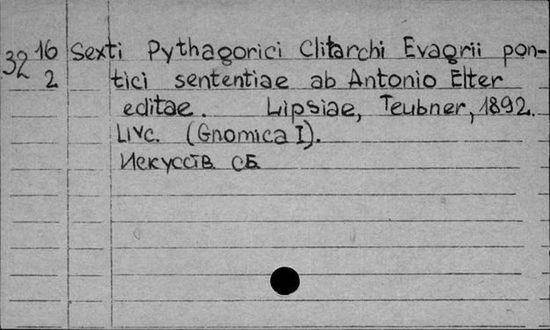 32 16 Sexti Pythagorici Clitarchi Evagrii pon-
2 tici sententiae ab Antonio Elter
editae. Lipsiae, Teubner, 1892.
LIVC. (Gnomica I).
Искусств СБ